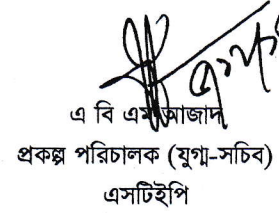 এ বি এম আজাদ
প্রকল্প পরিচালক (যুগ্ম-সচিব)
এসটিইপি